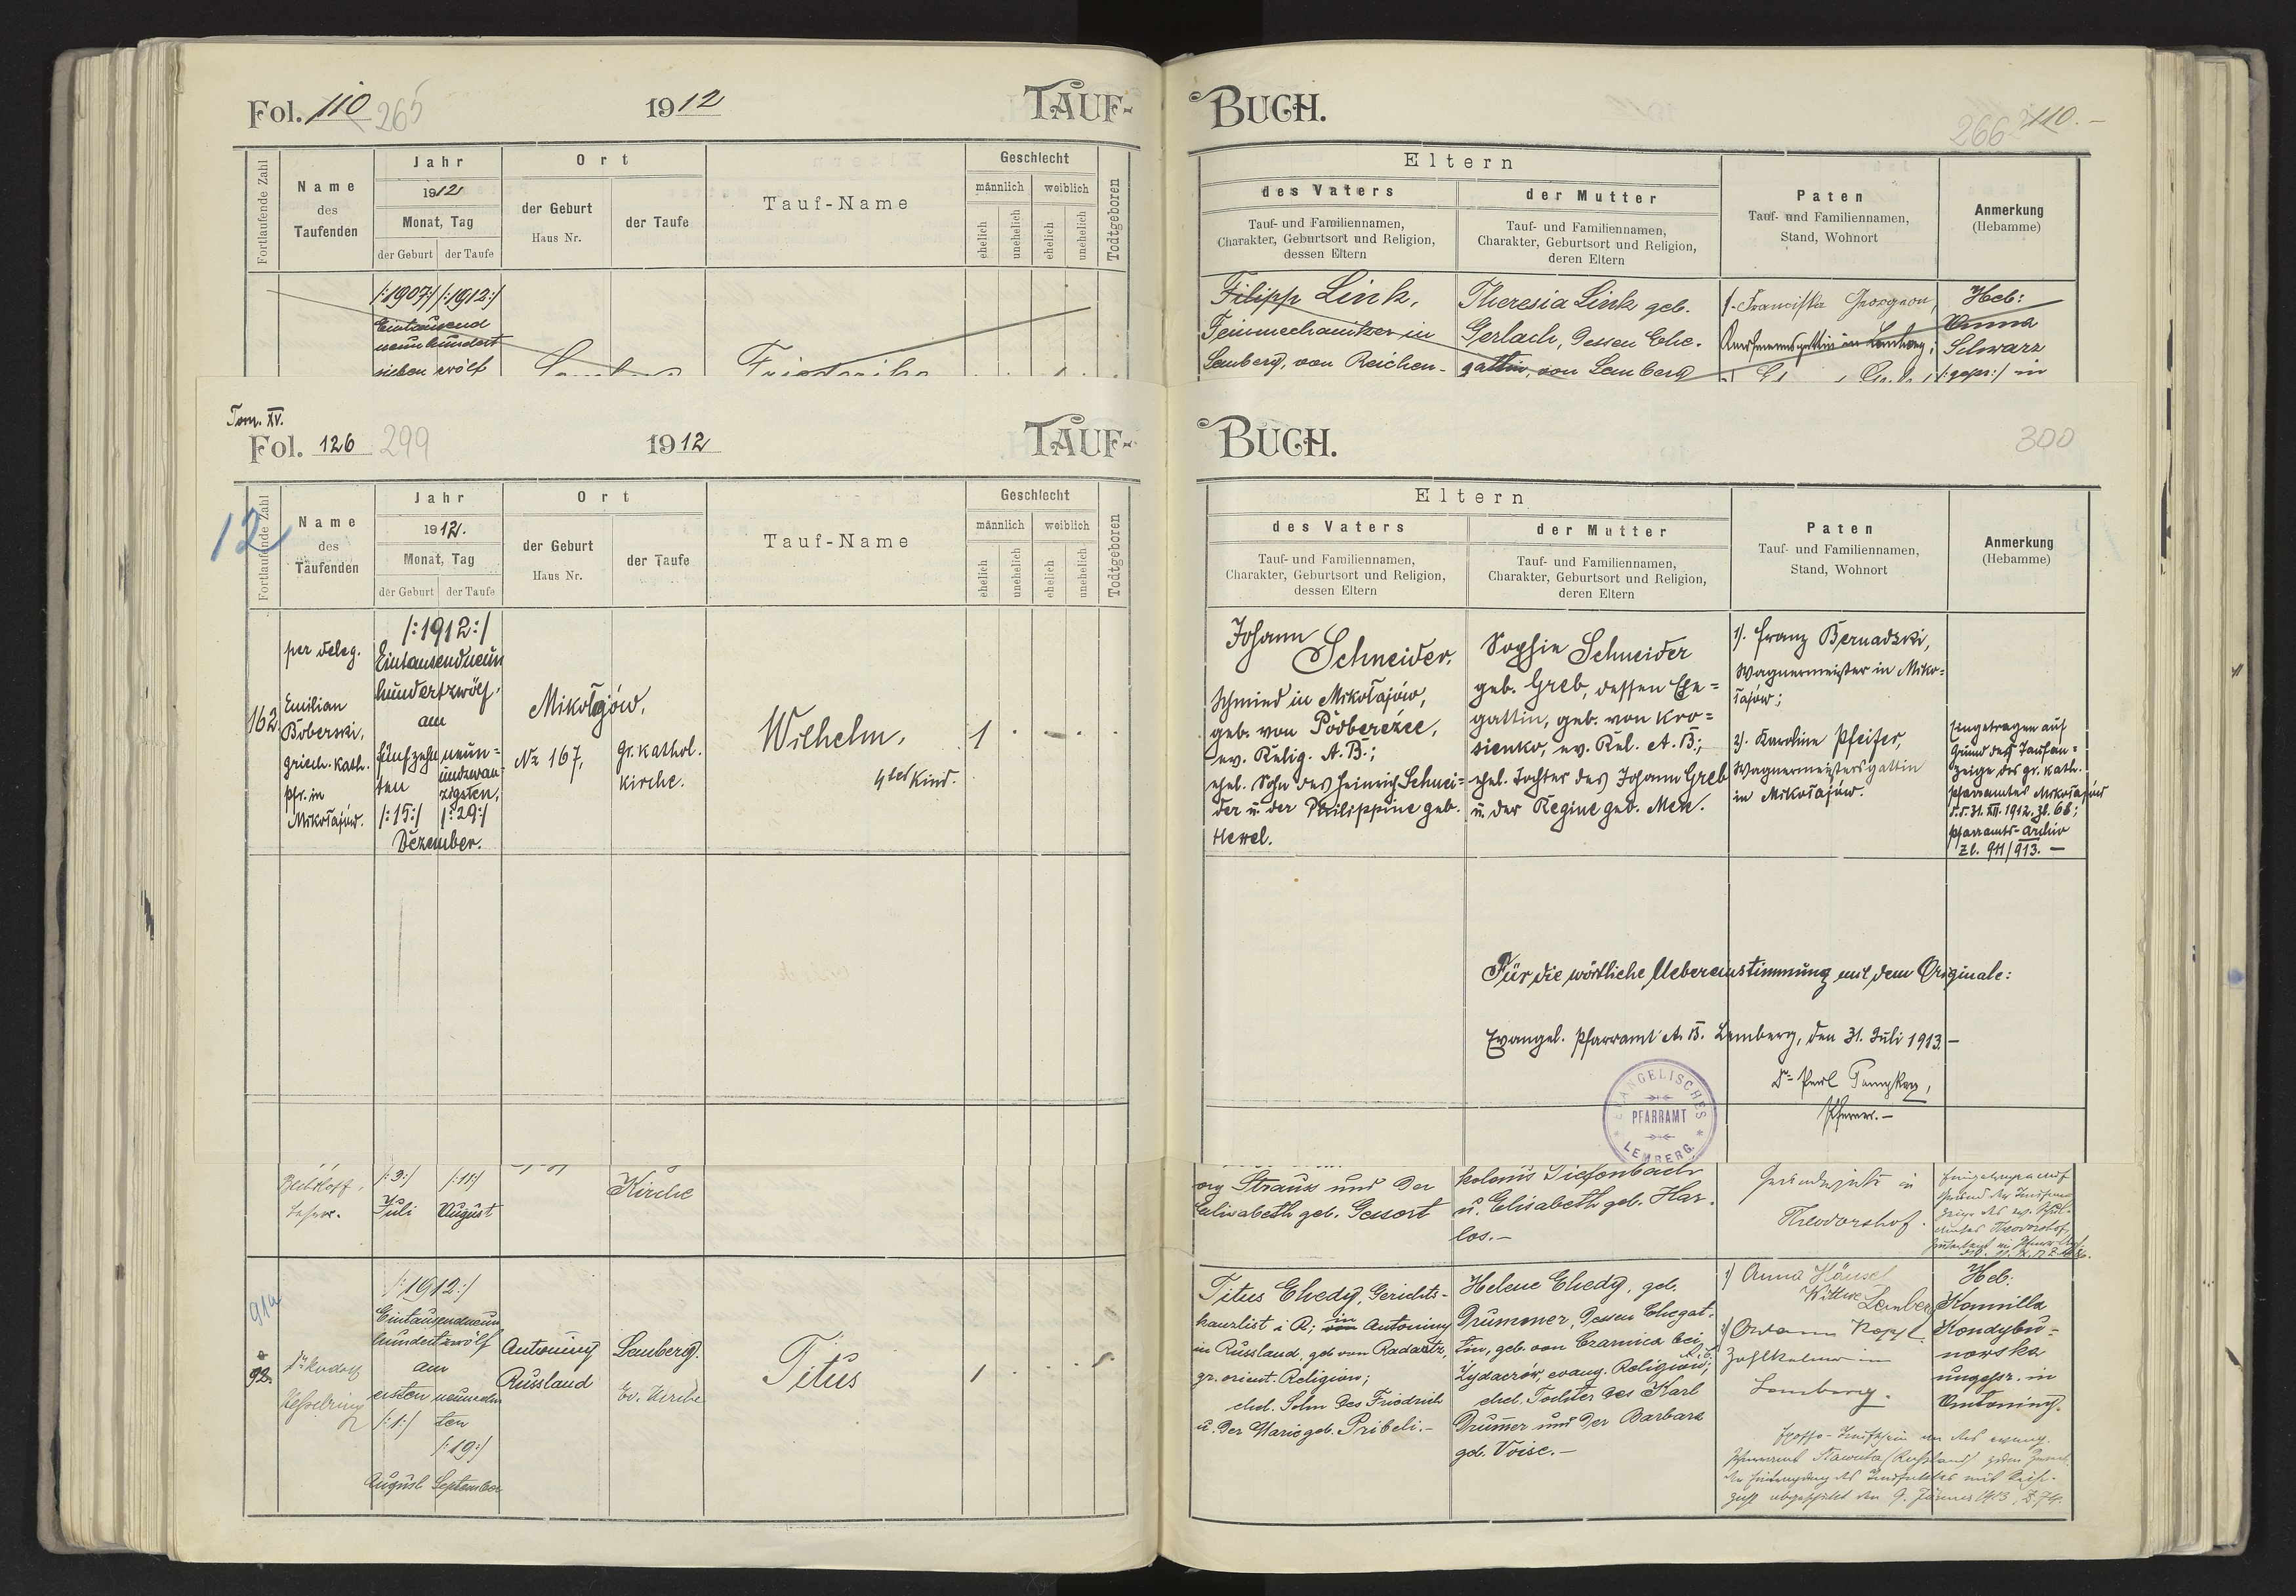 Fol. 110 265
1912
TAUF-
Fortlaufende Zahl
Name
des
Taufenden
Jahr
1912
Monat, Tag
der Geburt
der Taufe
Ort
der Geburt
Haus Nr.
der Taufe
Tauf-Name
Geschlecht
männlich
weiblich
ehelich
unehelich
ehelich
unehelich
Todtgeboren
/:1907:/ /:1912:/
Eintausend
neunhundert
sieben zwölf
Friederike
BUCH.
266 110.-
Eltern
des Vaters
Tauf- und Familiennamen,
Charakter, Geburtsort und Religion,
dessen Eltern
der Mutter
Tauf- und Familiennamen,
Charakter, Geburtsort und Religion,
deren Eltern
Paten
Tauf- und Familiennamen,
Stand, Wohnort
Anmerkung
(Hebamme)
Filipp Link,
Feinmechaniker in
Lemberg, von Reichen-
Theresia Link geb.
Gerlach, dessen Ehe-
gattin, von Lemberg
1. Franciska
in Lemberg;
Heb:
Anna
Schwarz
/:gepr:/ in
Tom. XV.
Fol. 126 299
1912
TAUF-
12
Fortlaufende Zahl
Name
des
Taufenden
Jahr
1912.
Monat, Tag
der Geburt
der Taufe
Ort
der Geburt
Haus Nr.
der Taufe
Tauf-Name
Geschlecht
männlich
weiblich
ehelich
unehelich
ehelich
unehelich
Todtgeboren
162
per deleg.
Emilian
Boberski,
griech. kath.
Pfr. in
Mikołajów.
/:1912:/
Eintausendneun
hundertzwölf,
am
fünfzehn
ten
/:15:/
neun=
undzwan-
zigsten,
/:29:/
Dezember.
Mikołajów,
No 167,
gr. kathol.
Kirche.
Wilhelm,
4tes Kind.
1 . - . .
BUCH.
300
Eltern
des Vaters
Tauf- und Familiennamen,
Charakter, Geburtsort und Religion,
dessen Eltern
der Mutter
Tauf- und Familiennamen,
Charakter, Geburtsort und Religion,
deren Eltern
Paten
Tauf- und Familiennamen,
Stand, Wohnort
Anmerkung
(Hebamme)
Johann
Schneider,
Schmied in Mikołajów,
geb. von Podberezce,
ev. Relig. A. B.;
ehel. Sohn des Heinrich Schnei=
der u. der Philippine geb.
Hewel.
Sophie Schneider
geb. Greb, dessen Ehe=
gattin, geb. von Kro=
sienko, ev. Rel. A. B.;
ehel. Tochter des Johann Greb
u. der Regine geb. Men.
1). Franz Bernadzki,
Wagnermeister in Miko=
łajów;
2). Karoline Pfeifer,
Wagnermeistersgattin
in Mikołajów.
Eingetragen auf
Grund der Taufan=
zeige des gr. kath.
Pfarramtes Mikołajów
d.d. 31. XII. 1912. Zl. 66;
Pfarramts-Archiv
Zl. 911/913. -
Für die wörtliche Uebereinstimmung mit dem Originale:
Evangel. Pfarramt A. B. Lemberg, den 31. Juli 1913.-
Pfarrer.-
EVANGELISCHES
PFARRAMT
LEMBERG
Lehrer.
/:3:/ /:11:/
Juli August
Kirche
org Straus und der
Elisabeth geb. Gessort
kolonis Tiefenbach
u. Elisabeth geb. Har-
los.-
in
Theodorshof.
91a
92.
Dr. Rudolf
Kesselring
/:1912:/
Eintausendneun
hundertzwölf
am
ersten neunzehn
/:1:/ ten
/:19:/
August September
Antoniny
Russland
Lemberg.
Ev. Kirche
Titus
1
Titus Chedy, Gerichts-
kanzlist i. R; in Antoniny
in Russland, geb von Radautz,
gr. orient. Religion;
ehel. Sohn des Friedrich
u. der Marie geb. Pribeli.-
Helene Chedy, geb.
Drummer, dessen Ehegat-
tin, geb. von Czarnica bei
Żydaczów, evang. Religion A. B.;
ehel. Tochter des Karl
Drummer und der Barbara
geb. Voise.-
1) Anna Hänsel
Wittwe Lemberg
in
Lemberg.
Heb:
Kamilla
Kondybu-
nowska
ungepr. in
Antoniny.